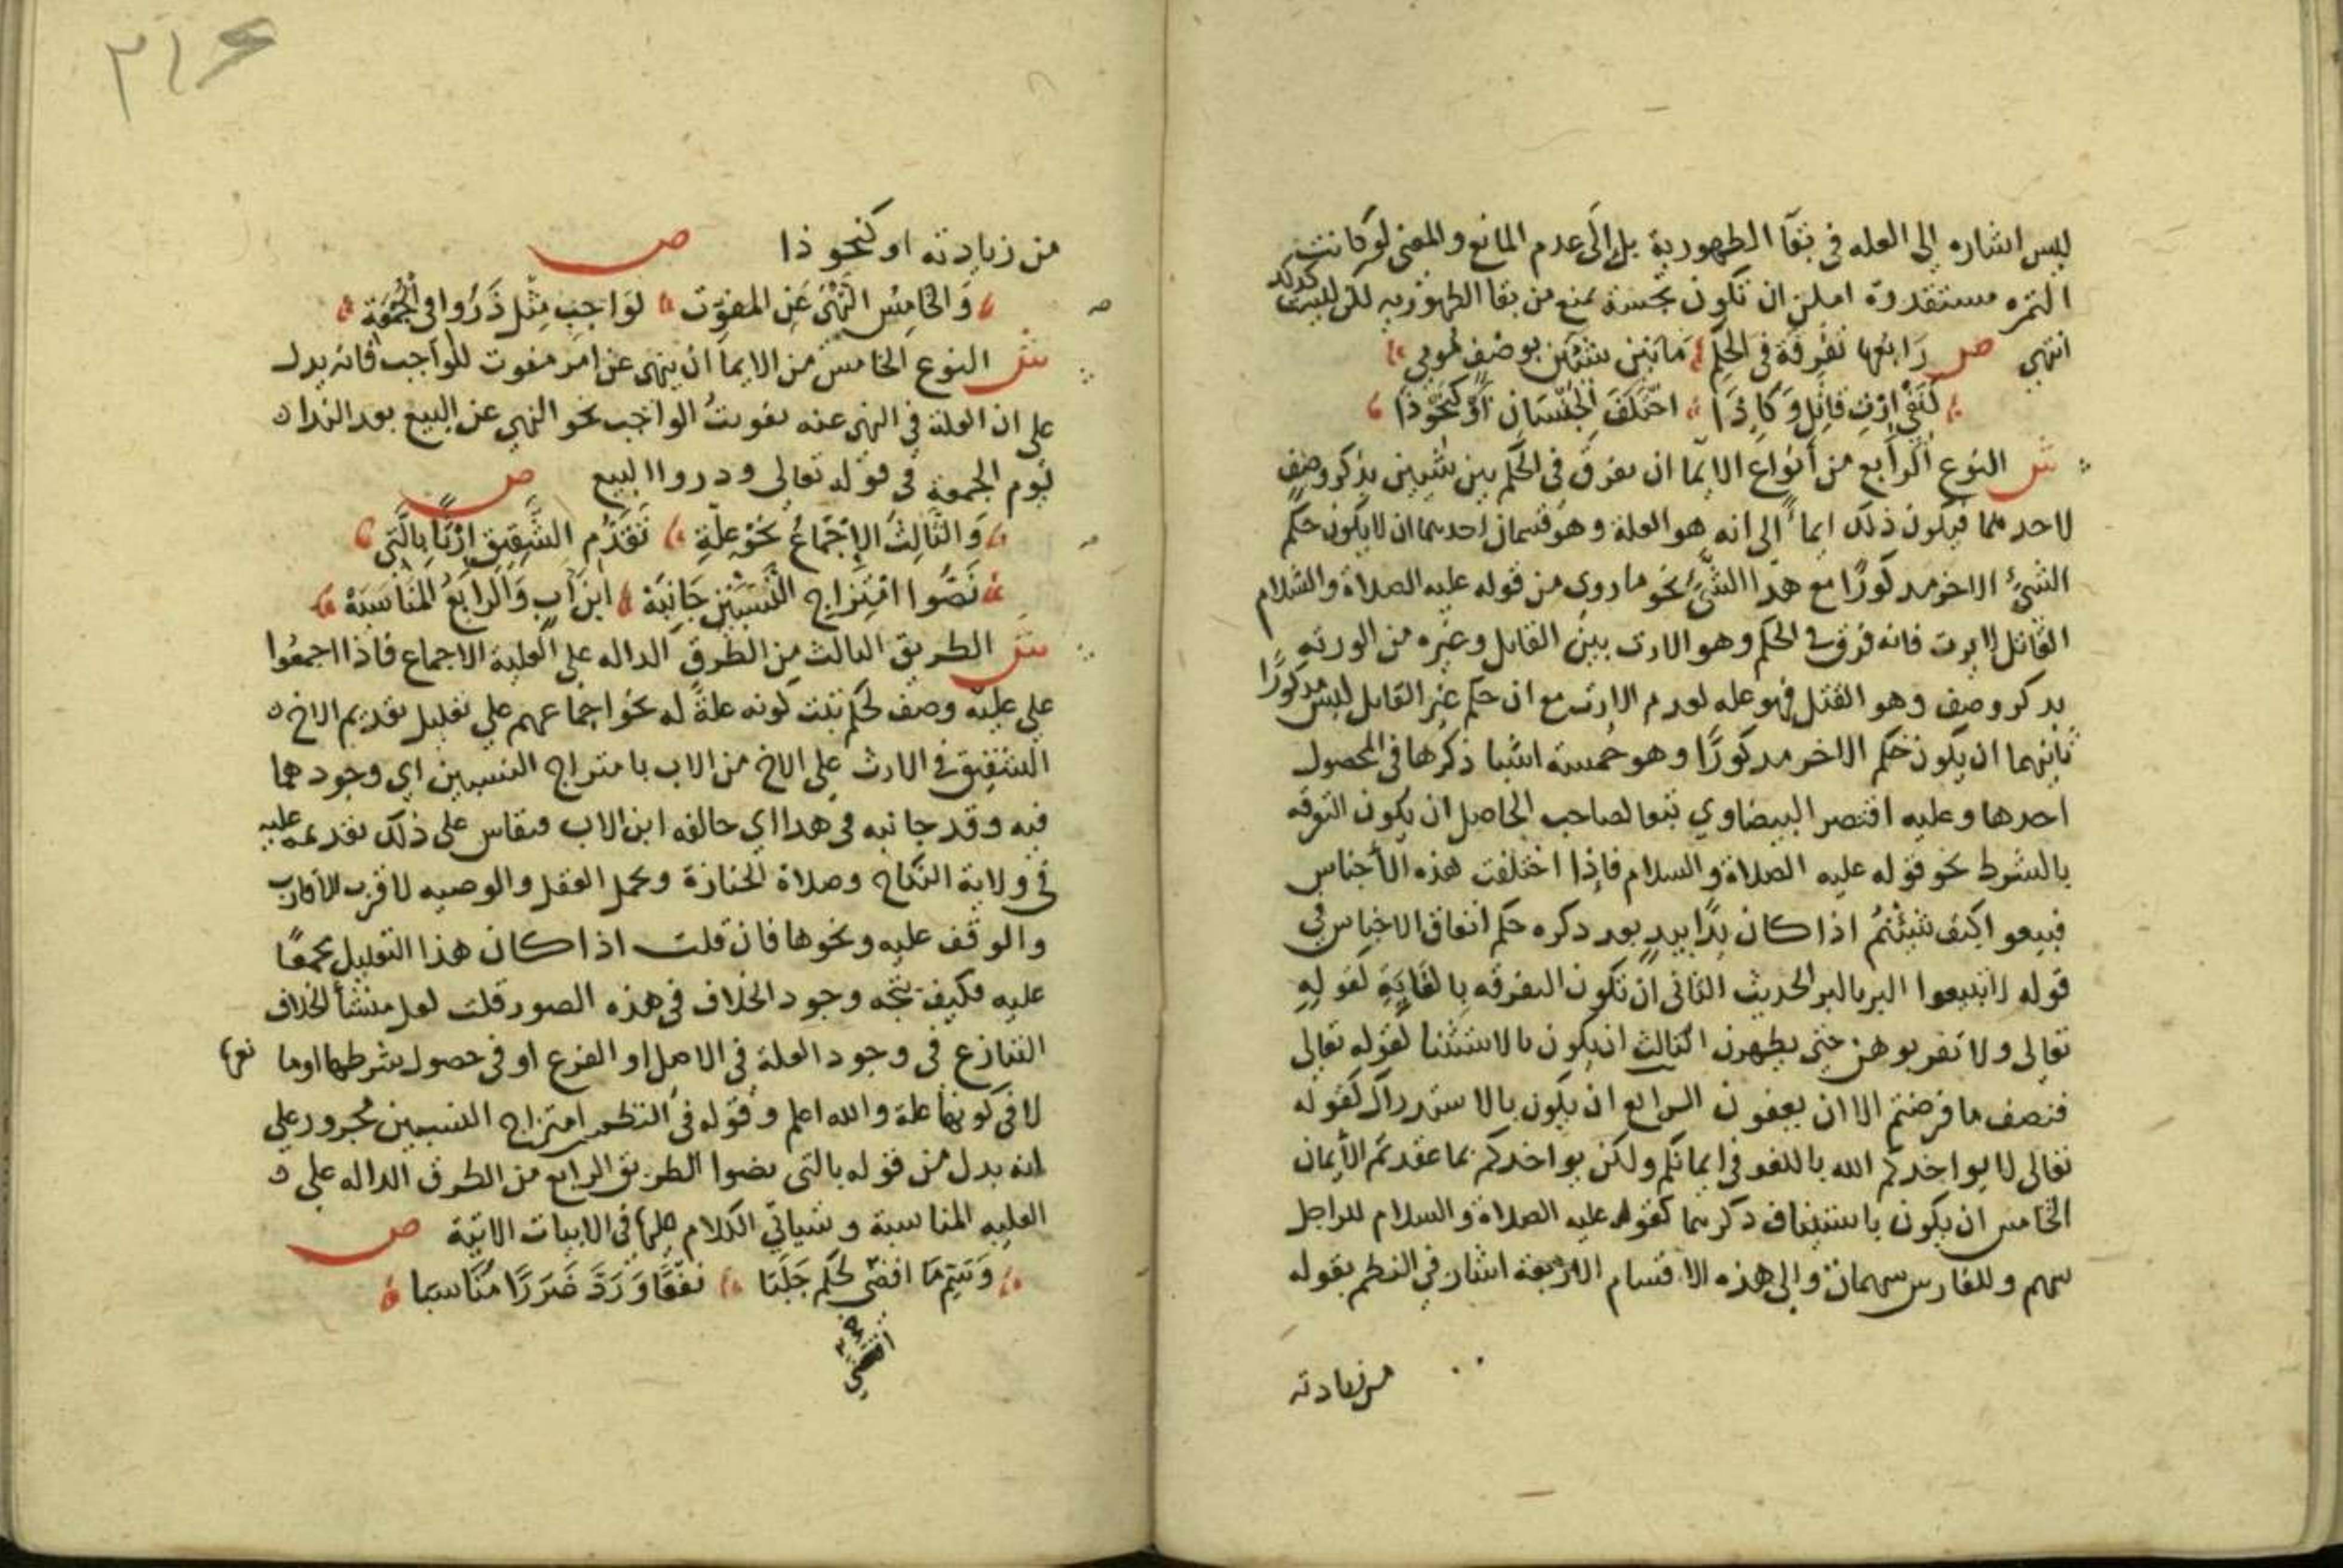 ليس اشاره الى العله فى بقآ الطهورية بل الى عدم المانع والمعنى لو كانت
التمره مستقدرة امكن ان تكون نجسة تمنع من بقا الطهوريه لكن ليست كذلك
انتهى ص رابعها تفرقة فى الحكم ما بين شيئين بوصف
اختلف الجنسان او كنحو ذا
ش النوع الرابع من أنواع الايمآ ان يفرق فى الحكم بين شيين بذكر وصف
لاحدهما فيكون ذلك ايماء الى انه هو العلة وهو قسمان احدهما ان لا يكون حكم
الشئ الاخر مدكورًا مع هذا الشئ نحو ما روى من قوله عليه الصلاة والسلام
القاتل لا يرث فانه فرق فى الحكم وهو الارث بين القاتل وغيره من الورثه
بدكر وصف وهو القتل فهو عله لعدم الارث مع ان حكم غير القاتل ليس مدكورًا
ثانيهما ان يكون حكم الاخر مدكورًا وهو خمسة اشيا ذكرها فى المحصول
احدها وعليه اقتصر البيضاوي تبعا لصاحب الحاصل ان يكون التفرقه
بالشرط نحو قوله عليه الصلاة والسلام فاذا اختلفت هذه الأجناس
فبيعوا كيف شئتم اذا كان يدًا بيد بعد دكره حكم اتفاق الاجناس في
قوله لا تبيعوا البر بالبر الحديث الثانى ان تكون التفرقه بالغاية كقوله
تعالى ولا تقربوهن حتى يطهرن الثالث ان يكون بالاستثنا كقوله تعالى
فنصف ما فرضتم الا ان يعفون الرابع ان يكون بالاستدراك كقوله
تعالى لا يواخدكم الله باللغو فى ايمانكم ولكن يواخدكم بما عقدتم الأيمان
الخامس ان يكون باستيناف دكرهما كقوله عليه الصلاة والسلام للراجل
سهم وللفارس سهمان والى هذه الاقسام الاربعة اشار في النظم بقوله
من زيادته
٢١٤
من زيادته او كنحو ذا ص
وَالخامِسُ النهْىُ عَنِ المفوّت لوَاجبٍ مِثْل ذَرُوا في الجُمُعَة
ش النوع الخامس من الايمآ ان ينهى عن امر مفوت للواجب فانه يدل
على ان العلة في النهى عنه تفويتُ الواجب نحو النهى عن البيع بعد الندا
يوم الجمعة فى قوله تعالى ودروا البيع ص
وَالثّالِثُ الإجْمَاعُ نحْوُ عِلّةِ تَقَدُّمِ الشَّقِيقِ ارْثًا بِالَّتِي
نَصُّوا امْتِزاجِ النّسَبَيْنِ جَانِبَهْ ابنَ ابٍ وَالرابعُ المنَاسَبَهْ
ش الطريق الثالث من الطرق الداله على العلية الاجماع فاذا اجمعوا
على علية وصف لحكم ثبت كونه علةً له نحو اجماعهم على تعليل تقديم الاخ
الشقيق فى الارث على الاخ من الاب بامتزاج النسبين اي وجودهما
فيه وقد جانبه فى هدا اي خالفه ابن الاب فيقاس على ذلك تقديمه عليه
فى ولاية النكاح وصلاة الجنازة وتحمل العقل والوصيه لاقرب الاقارب
والوقف عليه ونحوها فان قلت اذا كان هذا التعليل مجمعًا
عليه فكيف يتجه وجود الخلاف فى هذه الصور قلت لعل منشأ الخلاف
التنازع فى وجود العلة فى الاصل او الفرع او فى حصول شرطهما او ما
لا فى كونها علة والله اعلم وقوله فى النظم امتزاج النسبين مجرور على
انه بدل من قوله بالتى نصوا الطريق الرابع من الطرق الداله على
العليه المناسبة وسياتي الكلام عليها فى الابيات الاتية ص
وَسَمِّ مَا افضى لحكم جَلَبَا نفْعًا وَرَدَّ ضَرَرًا مُنَاسبا